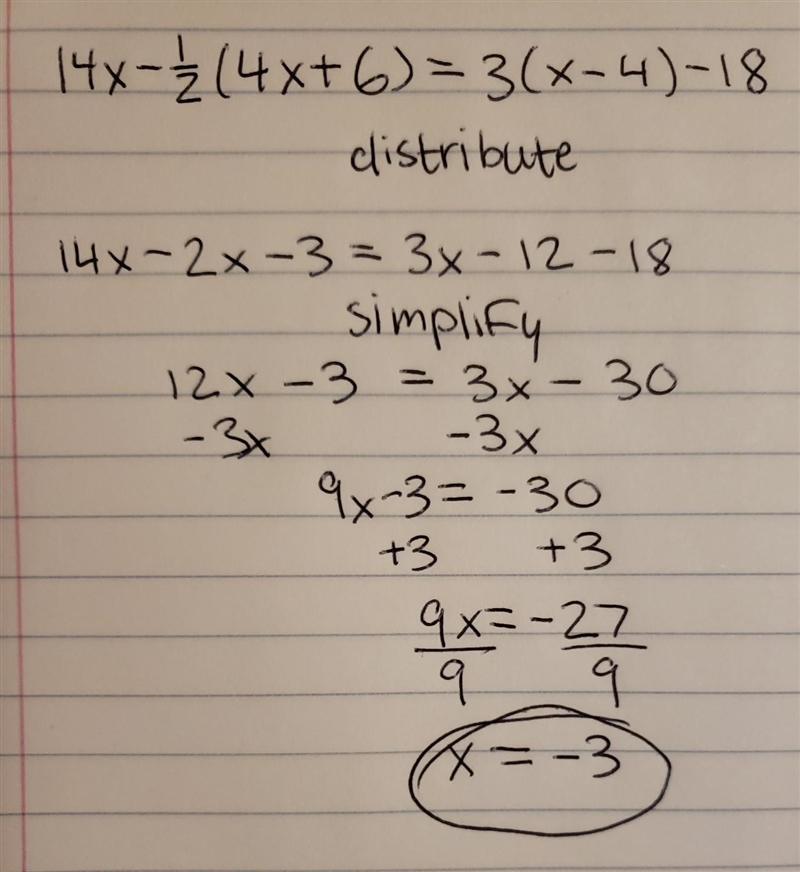 14x-½(4x+6)=3(x-4)-18
distribute
14x-2x-3=3x-12-18
simplify
12x-3=3x-30
-3x -3x
9x-3=-30
+3 +3
9x=-27
9 9
x=-3